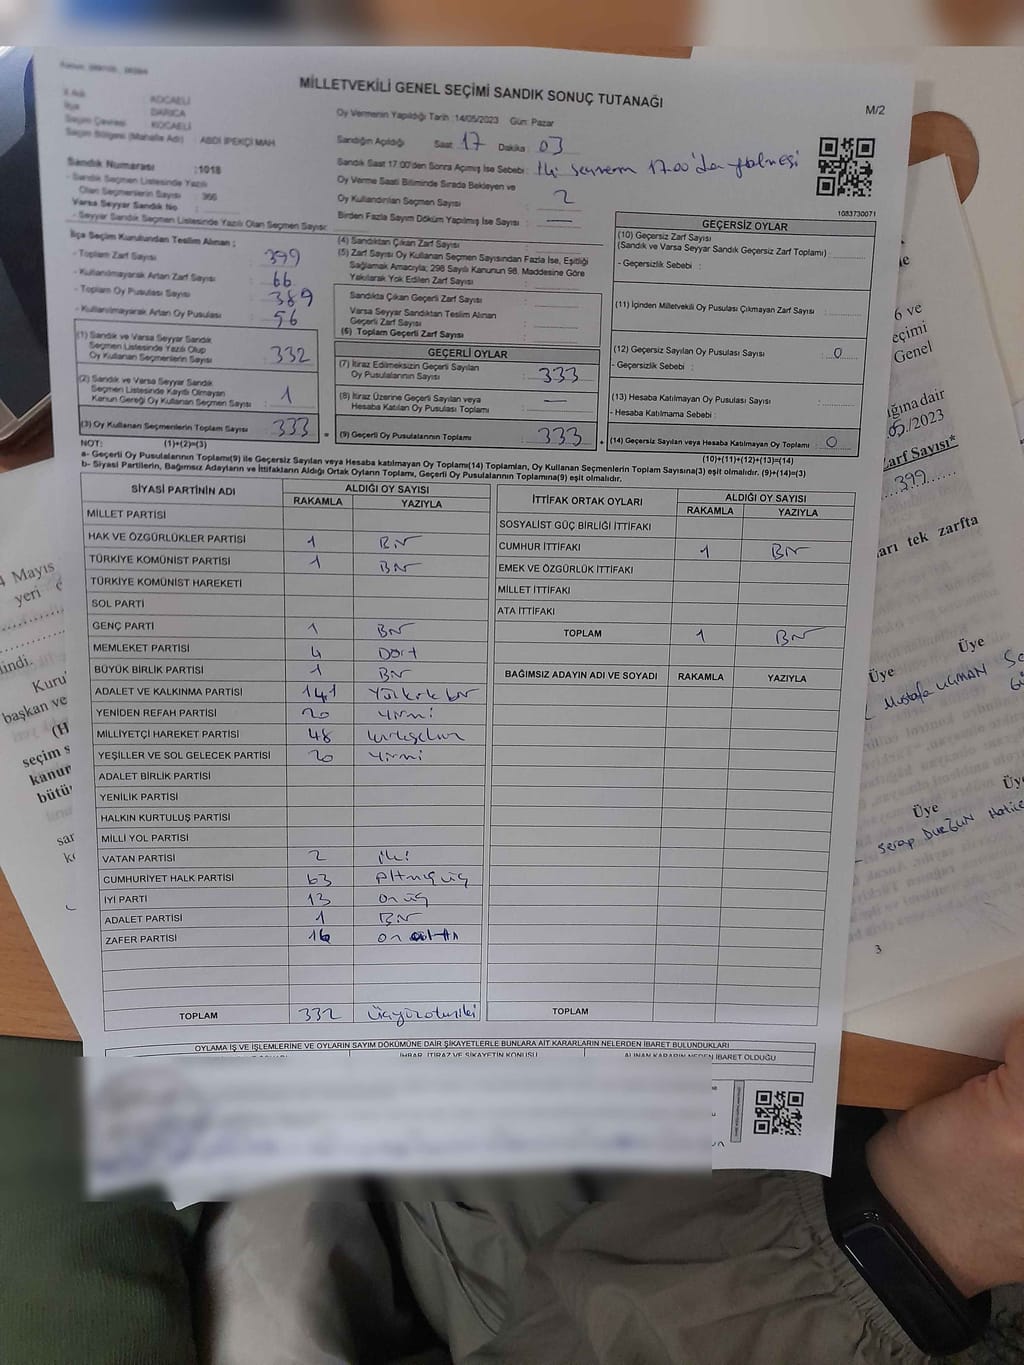 MİLLETVEKİLİ GENEL SEÇİMİ SANDIK SONUÇ TUTANAĞI
M/2
İl Adı : KOCAELİ
İlçe : DARICA
Seçim Çevresi : KOCAELİ
Seçim Bölgesi (Mahalle Adı) : ABDİ İPEKÇİ MAH
Oy Vermenin Yapıldığı Tarih :14/05/2023 Gün: Pazar
Sandığın Açıldığı Saat 17 Dakika : 03
Sandık Saat 17:00'den Sonra Açılmış İse Sebebi : İki seçmenin 17.00'da gelmesi
Oy Verme Saati Bitiminde Sırada Bekleyen ve
Oy Kullandırılan Seçmen Sayısı : 2
Birden Fazla Sayım Döküm Yapılmış İse Sayısı : —
1083730071
Sandık Numarası :1018
- Sandık Seçmen Listesinde Yazılı
Olan Seçmenlerin Sayısı : 366
Varsa Seyyar Sandık No :
- Seyyar Sandık Seçmen Listesinde Yazılı Olan Seçmen Sayısı:
İlçe Seçim Kurulundan Teslim Alınan ;
- Toplam Zarf Sayısı : 399
- Kullanılmayarak Artan Zarf Sayısı : 66
- Toplam Oy Pusulası Sayısı : 389
- Kullanılmayarak Artan Oy Pusulası : 56
(1) Sandık ve Varsa Seyyar Sandık
Seçmen Listesinde Yazılı Olup
Oy Kullanan Seçmenlerin Sayısı : 332
(2) Sandık ve Varsa Seyyar Sandık
Seçmen Listesinde Kayıtlı Olmayan
Kanun Gereği Oy Kullanan Seçmen Sayısı : 1
(3) Oy Kullanan Seçmenlerin Toplam Sayısı : 333
(4) Sandıktan Çıkan Zarf Sayısı :
(5) Zarf Sayısı Oy Kullanan Seçmen Sayısından Fazla İse, Eşitliği
Sağlamak Amacıyla; 298 Sayılı Kanunun 98. Maddesine Göre
Yakılarak Yok Edilen Zarf Sayısı :
Sandıkta Çıkan Geçerli Zarf Sayısı :
Varsa Seyyar Sandıktan Teslim Alınan
Geçerli Zarf Sayısı :
(6) Toplam Geçerli Zarf Sayısı :
GEÇERLİ OYLAR
(7) İtiraz Edilmeksizin Geçerli Sayılan
Oy Pusulalarının Sayısı : 333
(8) İtiraz Üzerine Geçerli Sayılan veya
Hesaba Katılan Oy Pusulası Toplamı : —
(9) Geçerli Oy Pusulalarının Toplamı : 333
GEÇERSİZ OYLAR
(10) Geçersiz Zarf Sayısı
(Sandık ve Varsa Seyyar Sandık Geçersiz Zarf Toplamı) :
- Geçersizlik Sebebi :
(11) İçinden Milletvekili Oy Pusulası Çıkmayan Zarf Sayısı :
(12) Geçersiz Sayılan Oy Pusulası Sayısı : 0
- Geçersizlik Sebebi :
(13) Hesaba Katılmayan Oy Pusulası Sayısı :
- Hesaba Katılmama Sebebi :
(14) Geçersiz Sayılan veya Hesaba Katılmayan Oy Toplamı : 0
NOT: (1)+(2)=(3)
(10)+(11)+(12)+(13)=(14)
a- Geçerli Oy Pusulalarının Toplamı(9) ile Geçersiz Sayılan veya Hesaba katılmayan Oy Toplamı(14) Toplamları, Oy Kullanan Seçmenlerin Toplam Sayısına(3) eşit olmalıdır. (9)+(14)=(3)
b- Siyasi Partilerin, Bağımsız Adayların ve İttifakların Aldığı Ortak Oyların Toplamı, Geçerli Oy Pusulalarının Toplamına(9) eşit olmalıdır.
SİYASİ PARTİNİN ADI ALDIĞI OY SAYISI
RAKAMLA YAZIYLA
MİLLET PARTİSİ
HAK VE ÖZGÜRLÜKLER PARTİSİ 1 Bir
TÜRKİYE KOMÜNİST PARTİSİ 1 Bir
TÜRKİYE KOMÜNİST HAREKETİ
SOL PARTİ
GENÇ PARTİ 1 Bir
MEMLEKET PARTİSİ 4 Dört
BÜYÜK BİRLİK PARTİSİ 1 Bir
ADALET VE KALKINMA PARTİSİ 141 Yüzkırkbir
YENİDEN REFAH PARTİSİ 20 Yirmi
MİLLİYETÇİ HAREKET PARTİSİ 48 kırksekiz
YEŞİLLER VE SOL GELECEK PARTİSİ 20 Yirmi
ADALET BİRLİK PARTİSİ
YENİLİK PARTİSİ
HALKIN KURTULUŞ PARTİSİ
MİLLİ YOL PARTİSİ
VATAN PARTİSİ 2 iki
CUMHURİYET HALK PARTİSİ 63 Altmışüç
İYİ PARTİ 13 onüç
ADALET PARTİSİ 1 Bir
ZAFER PARTİSİ 16 on altı
TOPLAM 332 Üçyüzotuziki
İTTİFAK ORTAK OYLARI ALDIĞI OY SAYISI
RAKAMLA YAZIYLA
SOSYALİST GÜÇ BİRLİĞİ İTTİFAKI
CUMHUR İTTİFAKI 1 Bir
EMEK VE ÖZGÜRLÜK İTTİFAKI
MİLLET İTTİFAKI
ATA İTTİFAKI
TOPLAM 1 Bir
BAĞIMSIZ ADAYIN ADI VE SOYADI RAKAMLA YAZIYLA
TOPLAM
OYLAMA İŞ VE İŞLEMLERİNE VE OYLARIN SAYIM DÖKÜMÜNE DAİR ŞİKAYETLERLE BUNLARA AİT KARARLARIN NELERDEN İBARET BULUNDUKLARI
İHBAR, İTİRAZ VE ŞİKAYETİN KONUSU ALINAN KARARIN NEDEN İBARET OLDUĞU
4 Mayıs
yeri
indi.
Kuru
başkan ve
seçim s
kanun
bütü
6 ve
eçimi
Genel
ğına dair
05./2023
Zarf Sayısı*
399
arı tek zarfta
Üye
Üye
Mustafa UÇMAN
Üye
Serap DURGUN Hatice
3